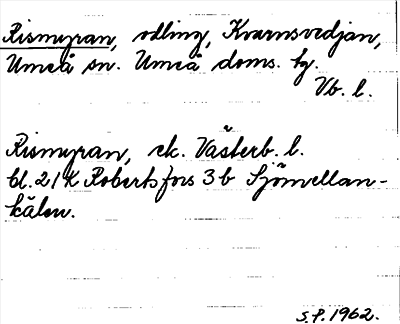 Rismyran, odling, Kvarnsvedjan,
Umeå sn. Umeå doms. tg.
Vb. l.
Rismyran, ek. Västerb. l.
bl. 21K Robertsfors 3b Sjömellan-
kälen.
S.P. 1962.